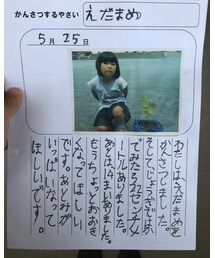 かんさつするやさい
えだまめ
5月25日
わたしは、えだまめを
かんさつしました。
そして、じょうぎではか
ってみたら22センチメ
ートルありました。
は、14まいありました。
もうちょっとおおき
くなってほしい
です。あとみが
いっぱいなって
ほしいです。